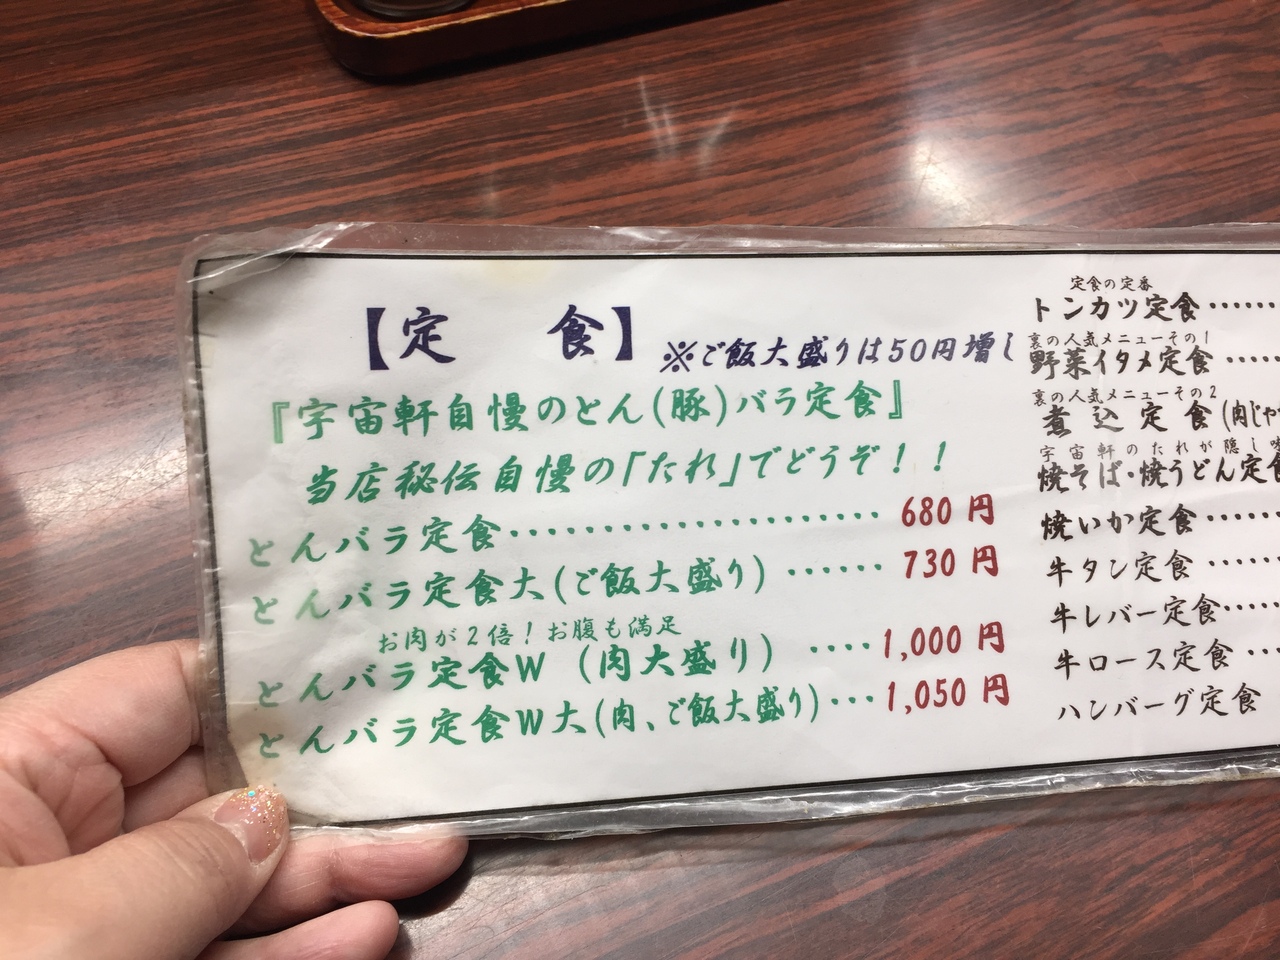 【定 食】
※ご飯大盛りは50円増し
『宇宙軒自慢のとん(豚)バラ定食』
当店秘伝自慢の「たれ」でどうぞ!!
とんバラ定食····················680円
とんバラ定食大(ご飯大盛り)······730円
お肉が2倍!お腹も満足
とんバラ定食W (肉大盛り) ····1,000円
とんバラ定食W大(肉、ご飯大盛り)···1,050円
定食の定番
トンカツ定食······
裏の人気メニューその1
野菜イタメ定食·····
裏の人気メニューその2
煮込定食(肉じゃ
宇宙軒のたれが隠し
焼そば・焼うどん定食
焼いか定食·····
牛タン定食·····
牛レバー定食·····
牛ロース定食···
ハンバーグ定食